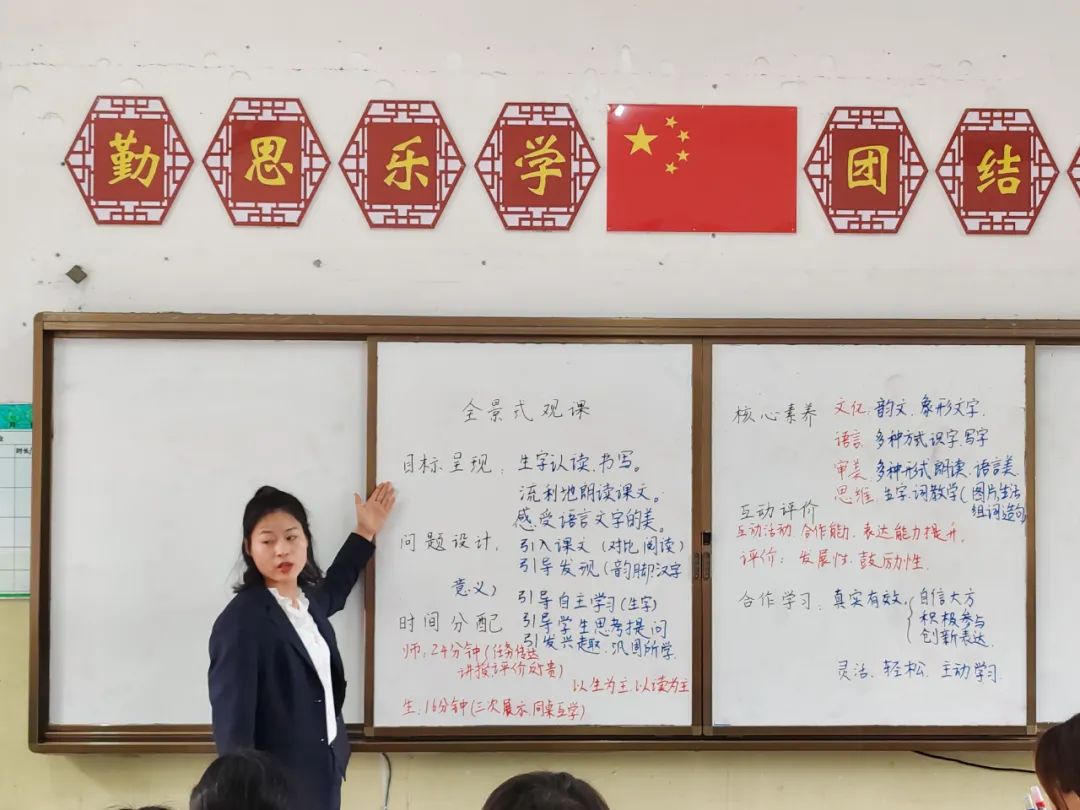 勤 思 乐 学 团 结
全景式观课
目标呈现: 生字认读、书写。
流利地朗读课文。
感受语言文字的美。
问题设计: 引入课文(对比阅读)
引导发现(韵脚·汉字
意义)
引导自主学习(生字)
引导学生思考提问
时间分配
引发兴趣、巩固所学.
师: 24分钟(任务传达
讲授评价反馈)
以生为主.以读为主
生: 16分钟(三次展示.同桌互学)
核心素养 文化: 韵文.象形文字.
语言: 多种方式识字.写字
审美: 多种形式朗读.语言美.
思维: 生字.词教学(图片生活
组词造句
互动评价
互动活动.合作能力.表达能力提升.
评价: 发展性.鼓励性.
合作学习: 真实有效. 自信大方
积极参与
创新表达
灵活、轻松、主动学习.